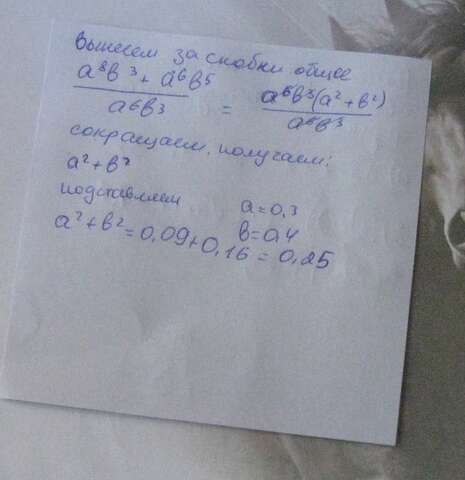 Вынесем за скобки общее
a⁸b³ + a⁶b⁵ / a⁶b³ = a⁶b³(a² + b²) / a⁶b³
сокращаем, получаем:
a² + b²
подставляем a = 0,3
b = 0,4
a² + b² = 0,09 + 0,16 = 0,25